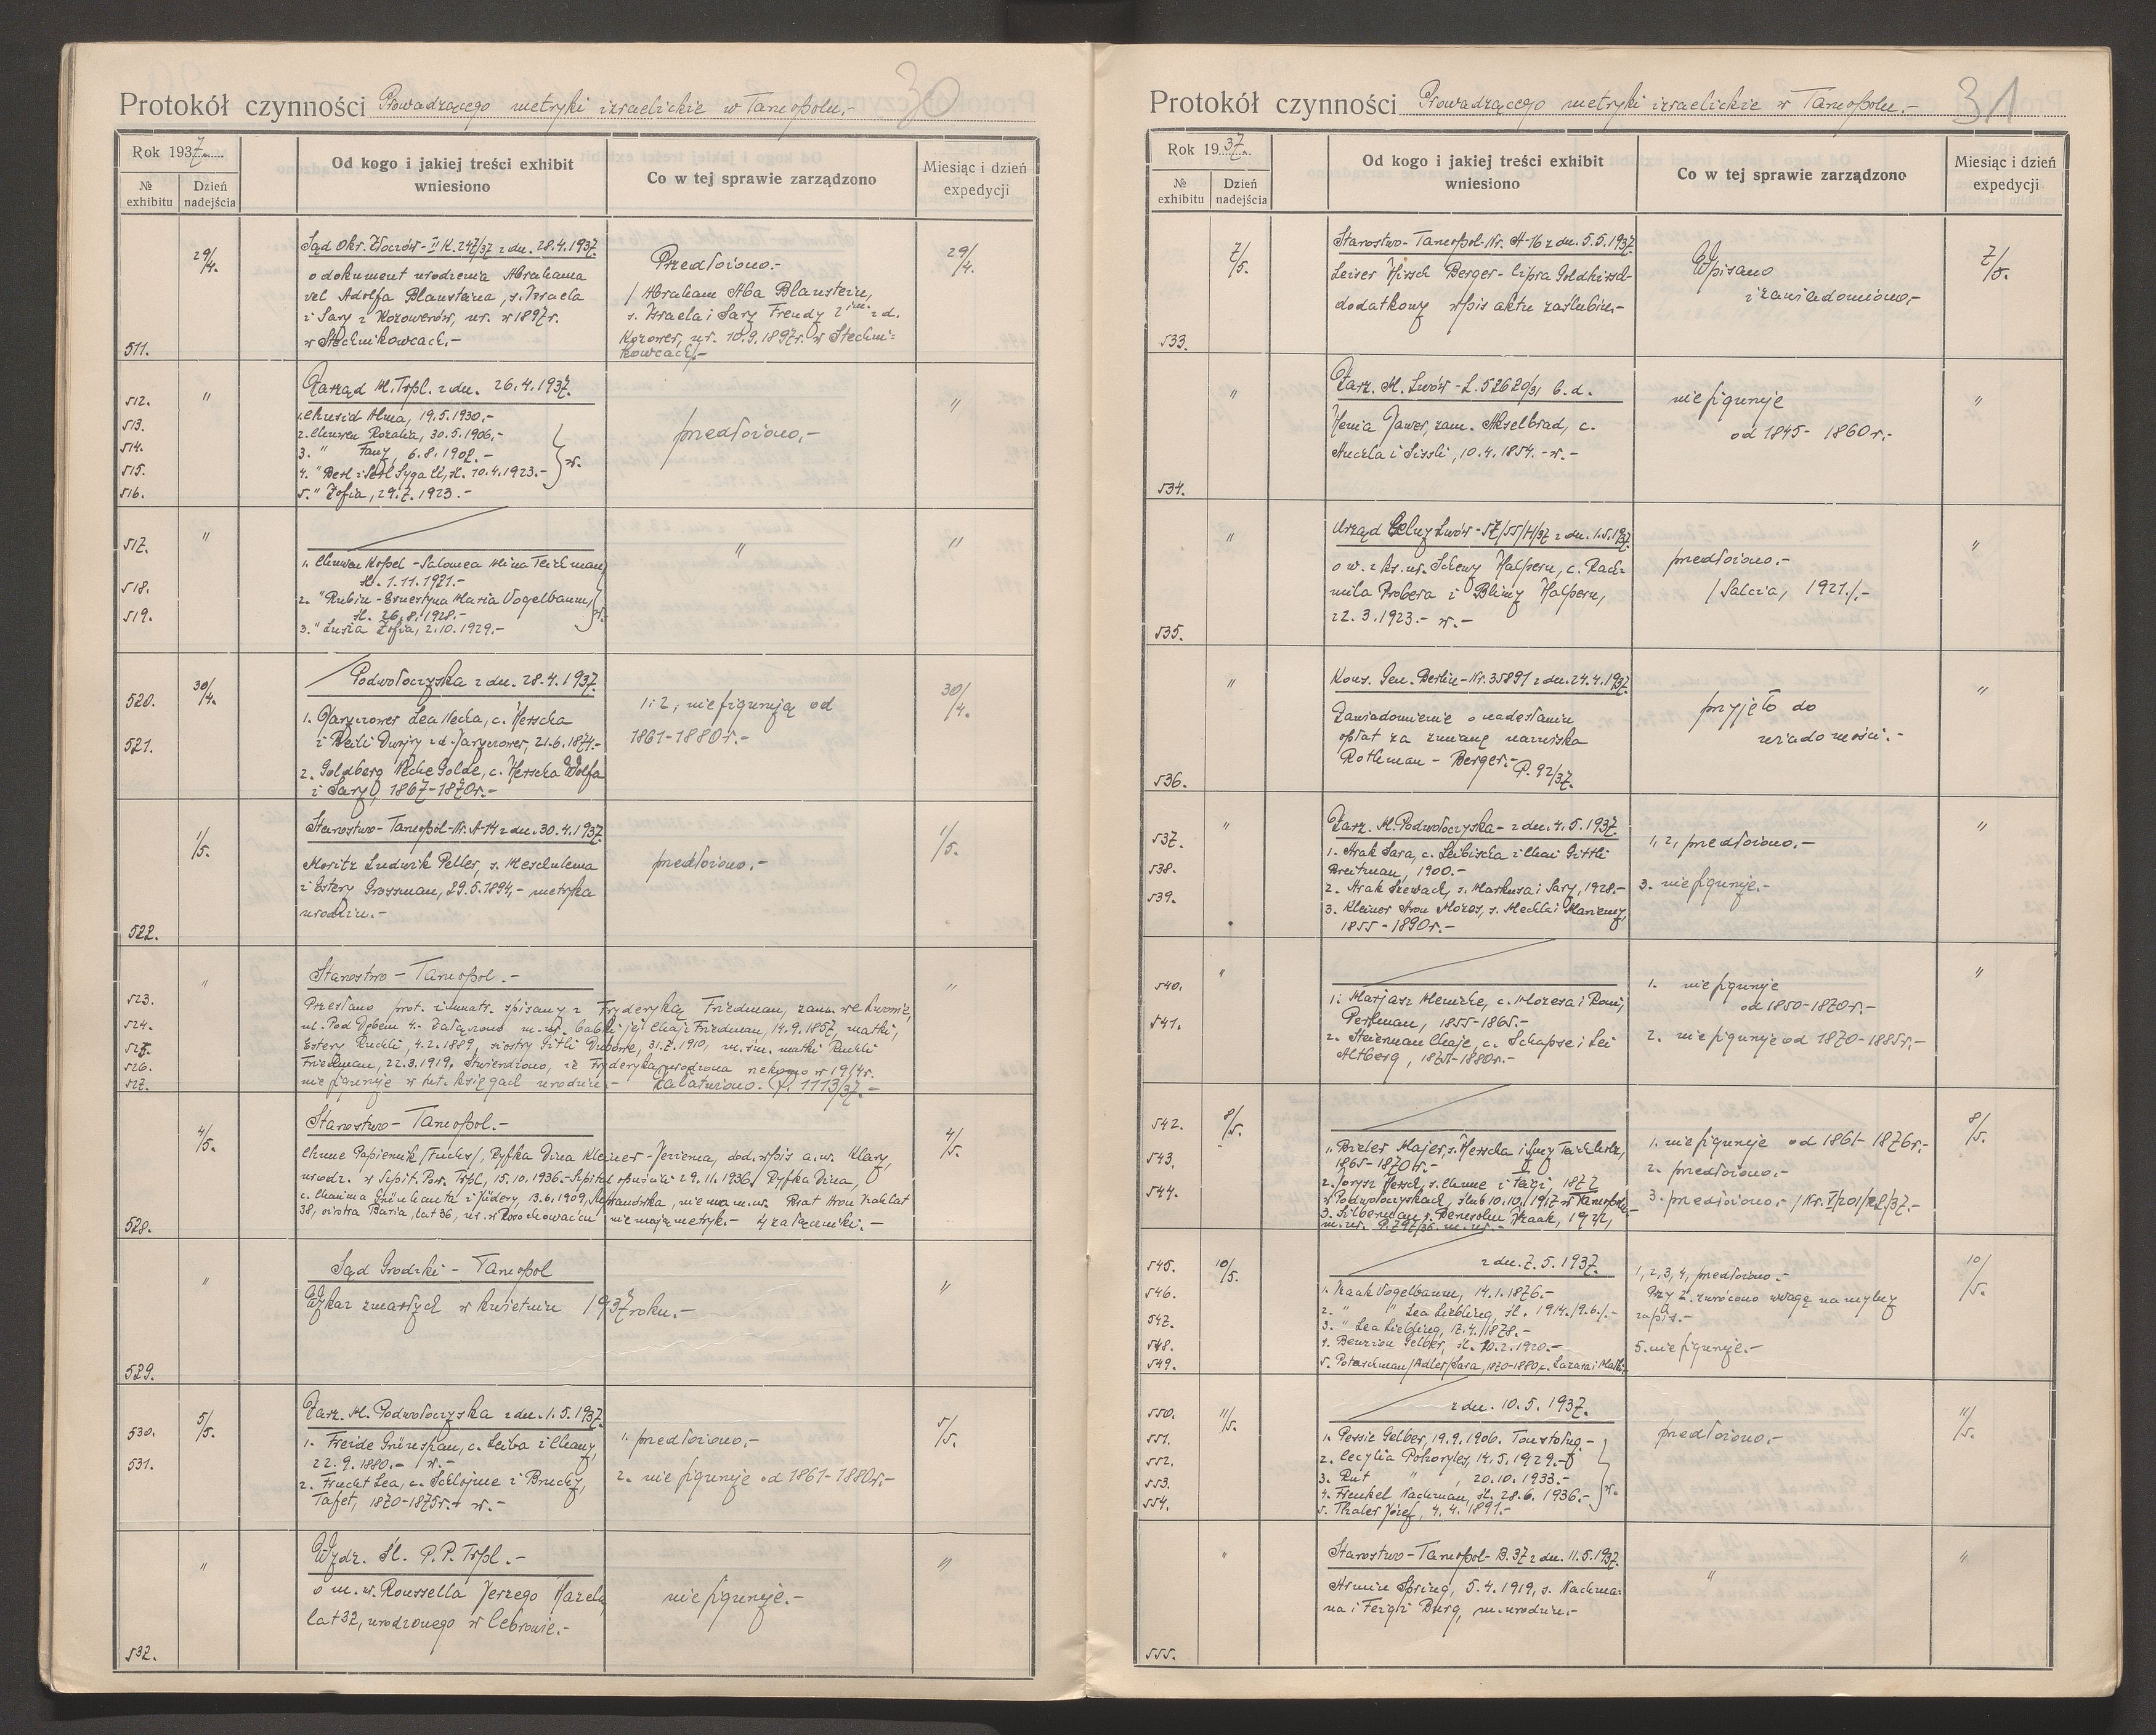 Protokół czynności Prowadzącego metryki izraelickie w Tarnopolu.-
30
Rok 1937.
№ exhibitu
Dzień nadejścia
Od kogo i jakiej treści exhibit wniesiono
Co w tej sprawie zarządzono
Miesiąc i dzień expedycji
511.
29/4.
Sąd Okr. Złoczów - II K. 247/37 z dn. 28.4.1937.
o dokument urodzenia Abrahama
vel Adolfa Blausteina, s. Izraela
i Sary z Kozowerów, ur. w 1897r.
w Stechnikowcach.-
Przedłożono.-
/ Abraham Aba Blaustein,
s. Izraela i Sary Freudy 2 im. z d.
Kozower, ur. 10.9.1897r. w Stechni-
kowcach/.-
29/4.
512.
513.
514.
515.
516.
"
Zarząd M. Trpl. z dn. 26.4.1937.
1. Chusid Alma, 19.5.1930.-
2. Chuwen Rozalia, 30.5.1906.-
3. " Fany, 6.8.1902.-
4. " Berl i Settl Sygall, śl. 10.4.1923.-
5. " Zofia, 29.7.1923.-
w.
przedłożono.-
"
517.
518.
519.
"
1. Chuwen Kopel - Salomea Mina Teichman,
śl. 1.11.1921.-
2. " Rubin - Ernestyna Maria Vogelbaum,
śl. 26.8.1928.-
3. " Lusia Zofia, 2.10.1929.-
w.
"
"
520.
521.
30/4.
Podwołoczyska z dn. 28.4.1937.
1. Jaryczower Lea Necha, c. Herscha
i Beili Dwojry z d. Jaryczower, 21.6.1874.-
2. Goldberg Neche Golde, c. Herscha Wolfa
i Sary, 1867-1870r.-
1 i 2, nie figurują od
1861-1880r.-
30/4.
522.
1/5.
Starostwo - Tarnopol - Nr. A-14 z dn. 30.4.1937.
Moritz Ludwik Peller, s. Meschulema
i Estery Grossman, 29.5.1894,- metryka
urodzin.-
przedłożono.-
1/5.
523.
524.
525.
526.
527.
"
Starostwo - Tarnopol.-
Przesłano prot. i unmatr. spisany z Fryderyką Friedman, zam. we Lwowie,
ul. Pod Dębem 4.- Załączono m. ur. babki jej Chaje Friedman, 14.9.1857, matki,
Estery Ruchli, 4.2.1889, siostry Gitli Debory, 31.7.1910, m. śm. matki Ruchli
Friedman, 22.3.1919, Stwierdzono, iż Fryderyka urodzona rzekomo w 1914r.
nie figuruje w tut. księgach urodzin.- Załatwiono. P. 1113/37.-
"
528.
4/5.
Starostwo - Tarnopol.-
Chune Papiernik /Fuchs/, Ryfka Dina Kleiner - Jezierna, dod. wpis a. u. Klary,
urodz. w Szpit. Pow. Trpl, 15.10.1936.- Szpital opuściła 29.11.1936. Ryfka Dina,
c. Chaima Grünhauta i Jüdery, 13.6.1909, nie ma m. ur. Brat Aron Nah lat
38, siostra Basia, lat 36, ur. w Rosochowaćcu nie mają metryk.- 4 załączniki.-
4/5.
529.
"
Sąd Grodzki - Tarnopol
Wykaz zmarłych w kwietniu 1937 roku.-
"
530.
531.
5/5.
Zarz. M. Podwołoczyska z dn. 1.5.1937.
1. Freide Grünspan, c. Leiba i Chany,
22.9.1880.- w.-
2. Frucht Lea, c. Schlojme i Bruchy,
Tafet, 1870-1875r.- w.-
1. przedłożono.-
2. nie figuruje od 1861-1880r.-
5/5.
532.
"
Wydz. Śl. P.P. Trpl.-
o m. ur. Roussella Jerzego Karola,
lat 32, urodzonego w Cebrowie.-
nie figuruje.-
"
Protokół czynności Prowadzącego metryki izraelickie w Tarnopolu.-
31
Rok 1937.
№ exhibitu
Dzień nadejścia
Od kogo i jakiej treści exhibit wniesiono
Co w tej sprawie zarządzono
Miesiąc i dzień expedycji
533.
7/5.
Starostwo - Tarnopol - Nr. A-16 z dn. 5.5.1937.
Leiser Hirsch Berger - Cipra Goldhirsch -
dodatkowy wpis aktu zaślubin.-
Wpisano
i zawiadomiono.-
7/5.
534.
"
Zarz. M. Lwów - L. 52620/31 b. d.
Henia Jawer, zam. Akselbrad, c.
Anczla i Sissli, 10.4.1854.- w.-
nie figuruje
od 1845-1860r.-
"
535.
"
Urząd Celny Lwów - 57/55/H/37 z dn. 1.5.1937.
o w. z ks. ur. Scheny Halpern, c. Rach-
mila Probera i Blimy Halpern,
22.3.1923.- w.-
przedłożono.-
/ Salcia, 1921./.-
"
536.
"
Kons. Gen. Berlin - Nr. 35891 z dn. 24.4.1937.
Zawiadomienie o nadesłaniu
opłat za zmianę nazwiska
Rothman - Berger.- P. 92/37.
przyjęto do
wiadomości.-
"
537.
538.
539.
"
Zarz. M. Podwołoczyska - z dn. 4.5.1937.
1. Arak Sara, c. Leibischa i Chai Gittli
Breitman, 1900.-
2. Arak Szewach, s. Markusa i Sary, 1928.-
3. Kleiner Aron Mozes, s. Mechla i Mariemy,
1855-1890r.-
1, 2, przedłożono.-
3. nie figuruje.-
"
540.
541.
"
1. Marjasz Menie, c. Mozesa i Romi,
Perlman, 1855-1865.-
2. Steierman Chaje, c. Schapse i Lei
Altberg, 1875-1880r.-
1. nie figuruje
od 1850-1870r.-
2. nie figuruje od 1870-1885r.-
"
542.
543.
544.
8/5.
1. Majer, s. Herscha i
1865-1870r.-
2. Hersch, s. Chune i Taigi, 1877
w Podwołoczyskach, ślub 10.10.1917 w Tarnopolu
3. Silberman s. Izaak, 1922,
m. ur. P. 797/36. m. ur.-
1. nie figuruje od 1861-1876r.-
2. przedłożono.-
3. przedłożono.- / Nr. V/201/28/37.-
8/5.
545.
546.
547.
548.
549.
10/5.
z dn. 7.5.1937.
1. Izaak Vogelbaum, 14.1.1876.-
2. " " Lea Liebling, śl. 1914./9.6./.-
3. " Lea Liebling, 17.4.1878.-
4. Benzion Gelber, śl. 10.2.1920.-
5. Potaschman /Adler/ Sara, 1870-1880, c. Lazara i Malki.
1, 2, 3, 4, przedłożono.-
Przy 2. zwrócono uwagę na mylny
zapis.-
5. nie figuruje.-
10/5.
550.
551.
552.
553.
554.
11/5.
z dn. 10.5.1937.
1. Pessie Gelber, 19.9.1906. Toustoług.-
2. Cecylia Pohoryles, 14.5.1929.-
3. Rut " , 20.10.1933.-
4. Frenkel Nachman, śl. 28.6.1936.-
5. Thaler Józef, 4.4.1891.-
w.
przedłożono.-
11/5.
555.
"
Starostwo - Tarnopol - B. 37 z dn. 11.5.1937.
Armin Spring, 5.4.1919, s. Nachma-
na i Feigi Burg, m. urodzin.-
"
"